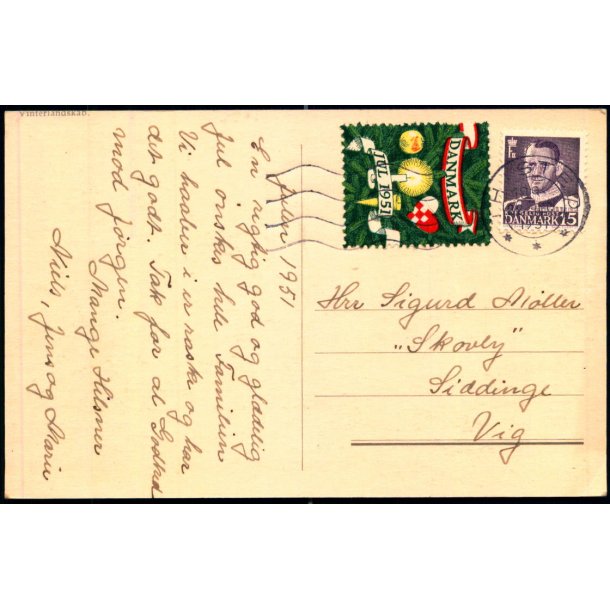 Vinterlandskab.
Julen 1951
En rigtig god og glædelig
Jul ønskes hele Familien
Vi haaber i er raske og har
det godt. Tak for al Godhed
mod Jörgen.
Mange Hilsner
Niels, Jens og Marie
DANMARK
JUL 1951
DANMARK 15
Hrr Sigurd Møller
„Skovly"
Siddinge
Vig